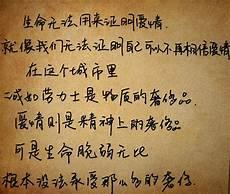 生命无法用来证明爱情
就像我们无法证明自己可以不再相信爱情
在这个城市里
诚如劳力士是物质的奢侈品
爱情则是精神上的奢侈品
可是生命脆弱无比
根本没法承受那么多的奢侈